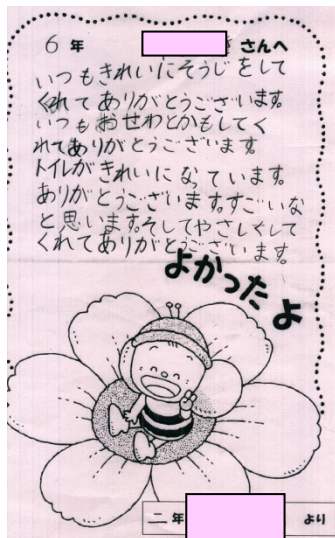 6年 さんへ
いつもきれいにそうじをして
くれてありがとうございます。
いつもおせわとかもしてく
れてありがとうございます
トイレがきれいになっています。
ありがとうございます。すごいな
と思います。そしてやさしくして
くれてありがとうございます。
よかったよ
二年 より